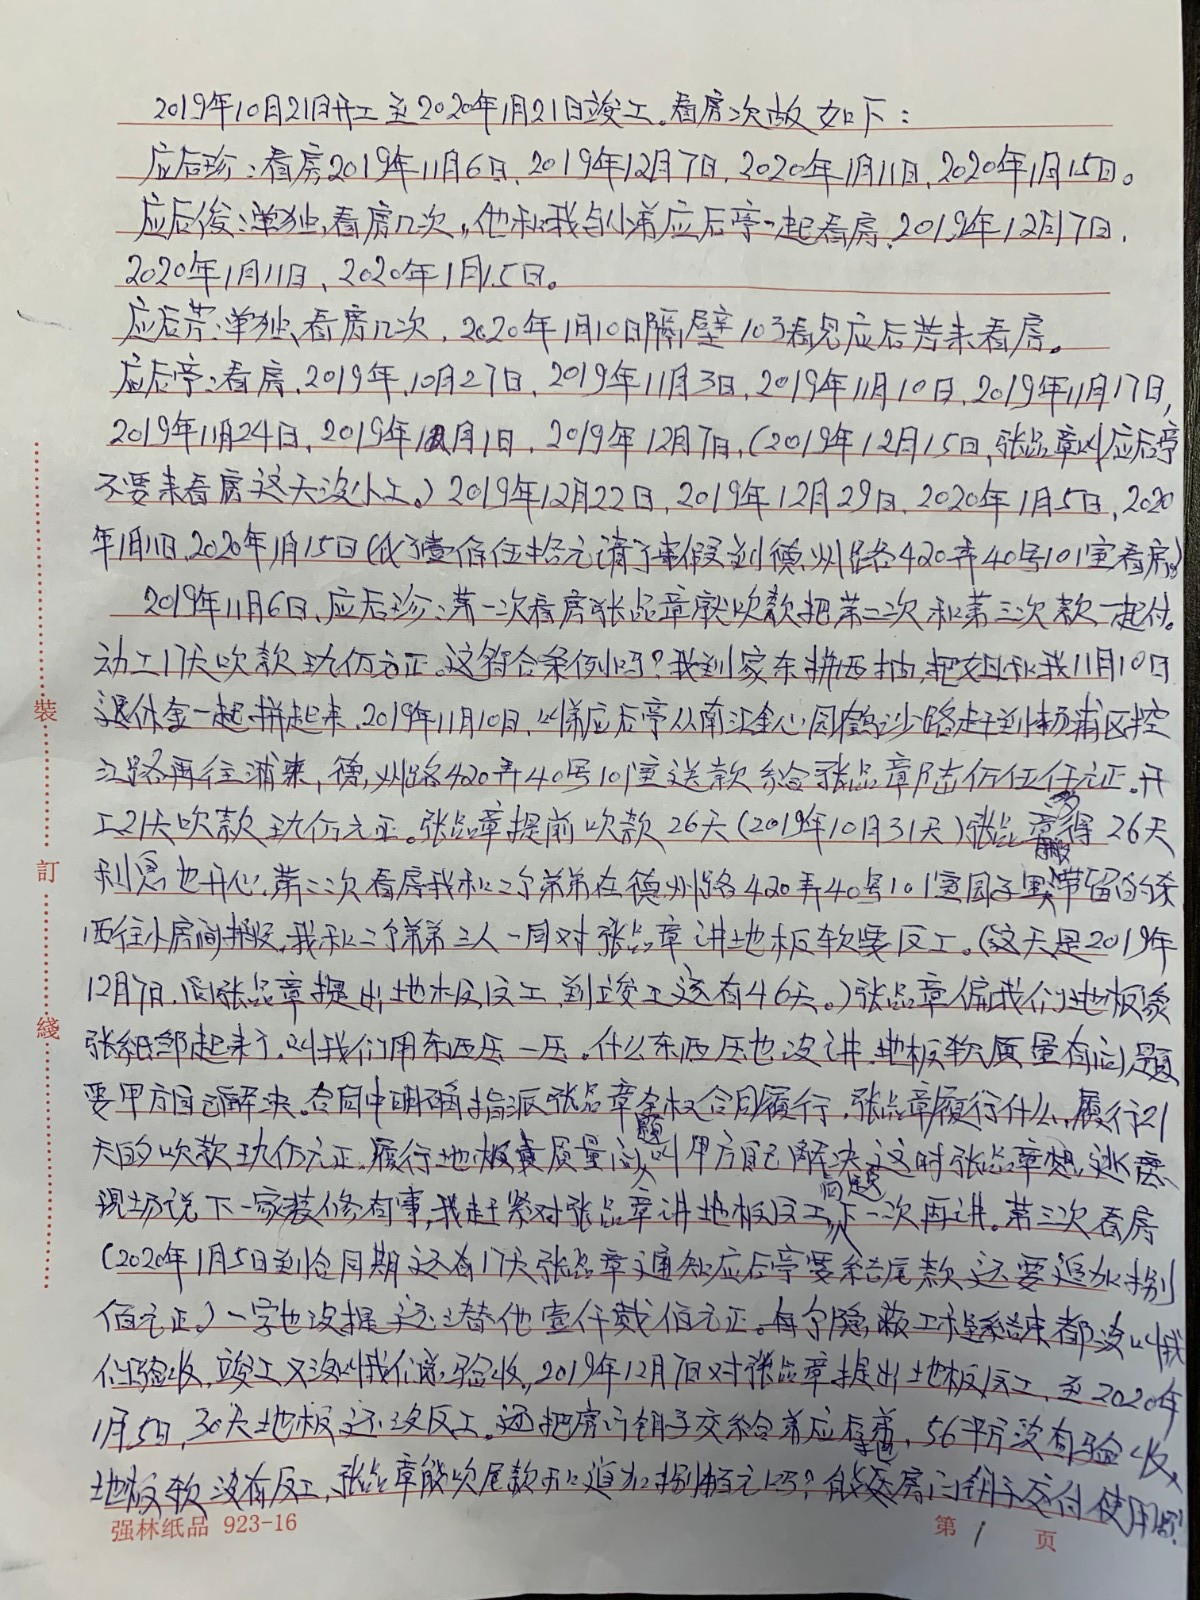 2019年10月21日开工至2020年1月21日竣工。看房次做如下：
应后珍：看房2019年11月6日、2019年12月7日、2020年1月11日、2020年1月15日。
应后俊：单独、看房几次，他和我与小弟应后亭一起看房、2019年12月7日、
2020年1月11日、2020年1月15日。
应后芳：单独、看房几次，2020年1月10日隔壁103看见应后芳来看房。
应后亭：看房、2019年10月27日、2019年11月3日、2019年11月10日、2019年11月17日，
2019年11月24日、2019年12月1日、2019年12月7日、(2019年12月15日、张品章叫应后亭
不要来看房这天没小工。)2019年12月22日、2019年12月29日、2020年1月5日、2020
年1月11日、2020年1月15日(伏了壹佰伍拾元请了事假到德州路420弄40号101室看房。)
2019年11月6日、应后珍：第一次看房张品章就吹款把第二次和第三次款一起付。
动工17天吹款玖仟元正。这符合条例吗？我到家东拼西抽，把女和我11月10日
退休金一起拼起来，2019年11月10日、叫弟应后亭从南汇金心园鹤沙路赶到杨浦区控
江路再往浦东，德州路420弄40号101室送款给张品章陆仟伍仟元正。开
工21天吹款玖仟元正。张品章提前吹款26天(2019年10月31天)张品章多得26天
利息也开心，第二次看房我和二个弟弟在德州路420弄40号101室园子里带留的东
西往小房间搬，我和二个弟弟三人一同对张品章讲地板软要反工。(这天是2019年
12月7日、同张品章提出地板反工到竣工还有46天。)张品章偏我们地板象
张纸都起来了，叫我们用东西压一压。什么东西压也没讲，地板软质量有问题
要甲方自己解决。合同中明确指派张品章全权合同履行，张品章履行什么，履行21
天的吹款玖仟元正，履行地板质量问题叫甲方自己解决，这时张品章想逃离
现场说下一家装修有事，我赶紧对张品章讲地板反工问题，下一次再讲。第三次看房
(2020年1月5日到合同期还有17天张品章通知应后亭要结尾款还要追加捌
佰元正。)一字也没提还潜他壹仟贰佰元正。每个隐蔽工程结束都没叫我
们验收，竣工又没叫我们验收，2019年12月7日对张品章提出地板反工，至2020年
1月5日，30天地板还没反工。还把房门钥子交给弟应后亭，56平方没有验收，
地板软没有反工，张品章能吹尾款和追加捌佰元吗？能房门钥子交付使用吗？
裝
訂
綫
强林纸品 923-16
第1页